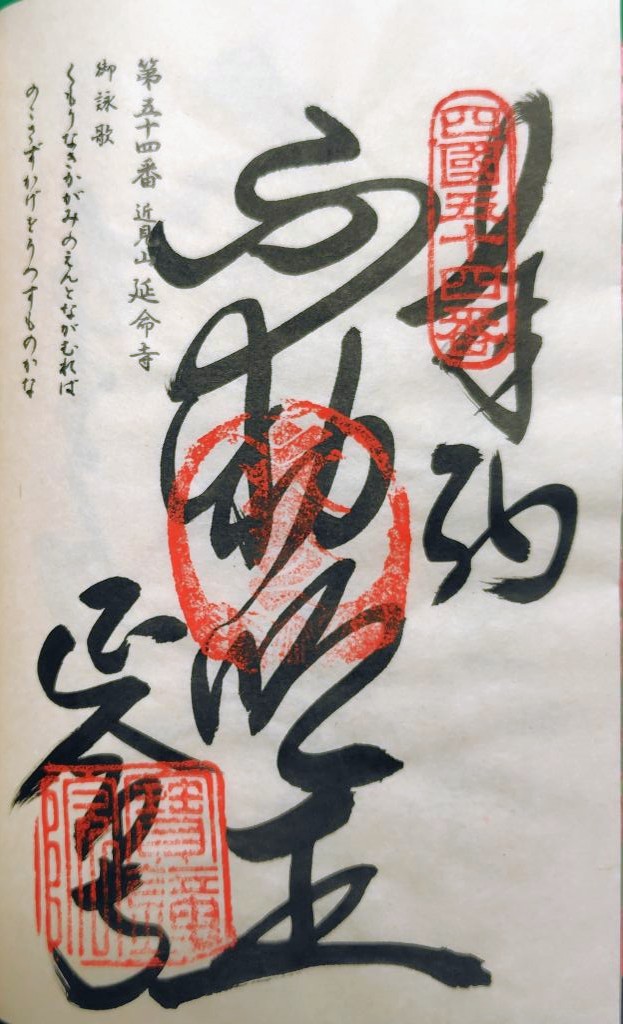 四國五十四番
奉納
不動明王
第五十四番 近見山 延命寺
御詠歌
くもりなきかがみのえんとながむれば
のこさずかげをうつすものかな
延命寺